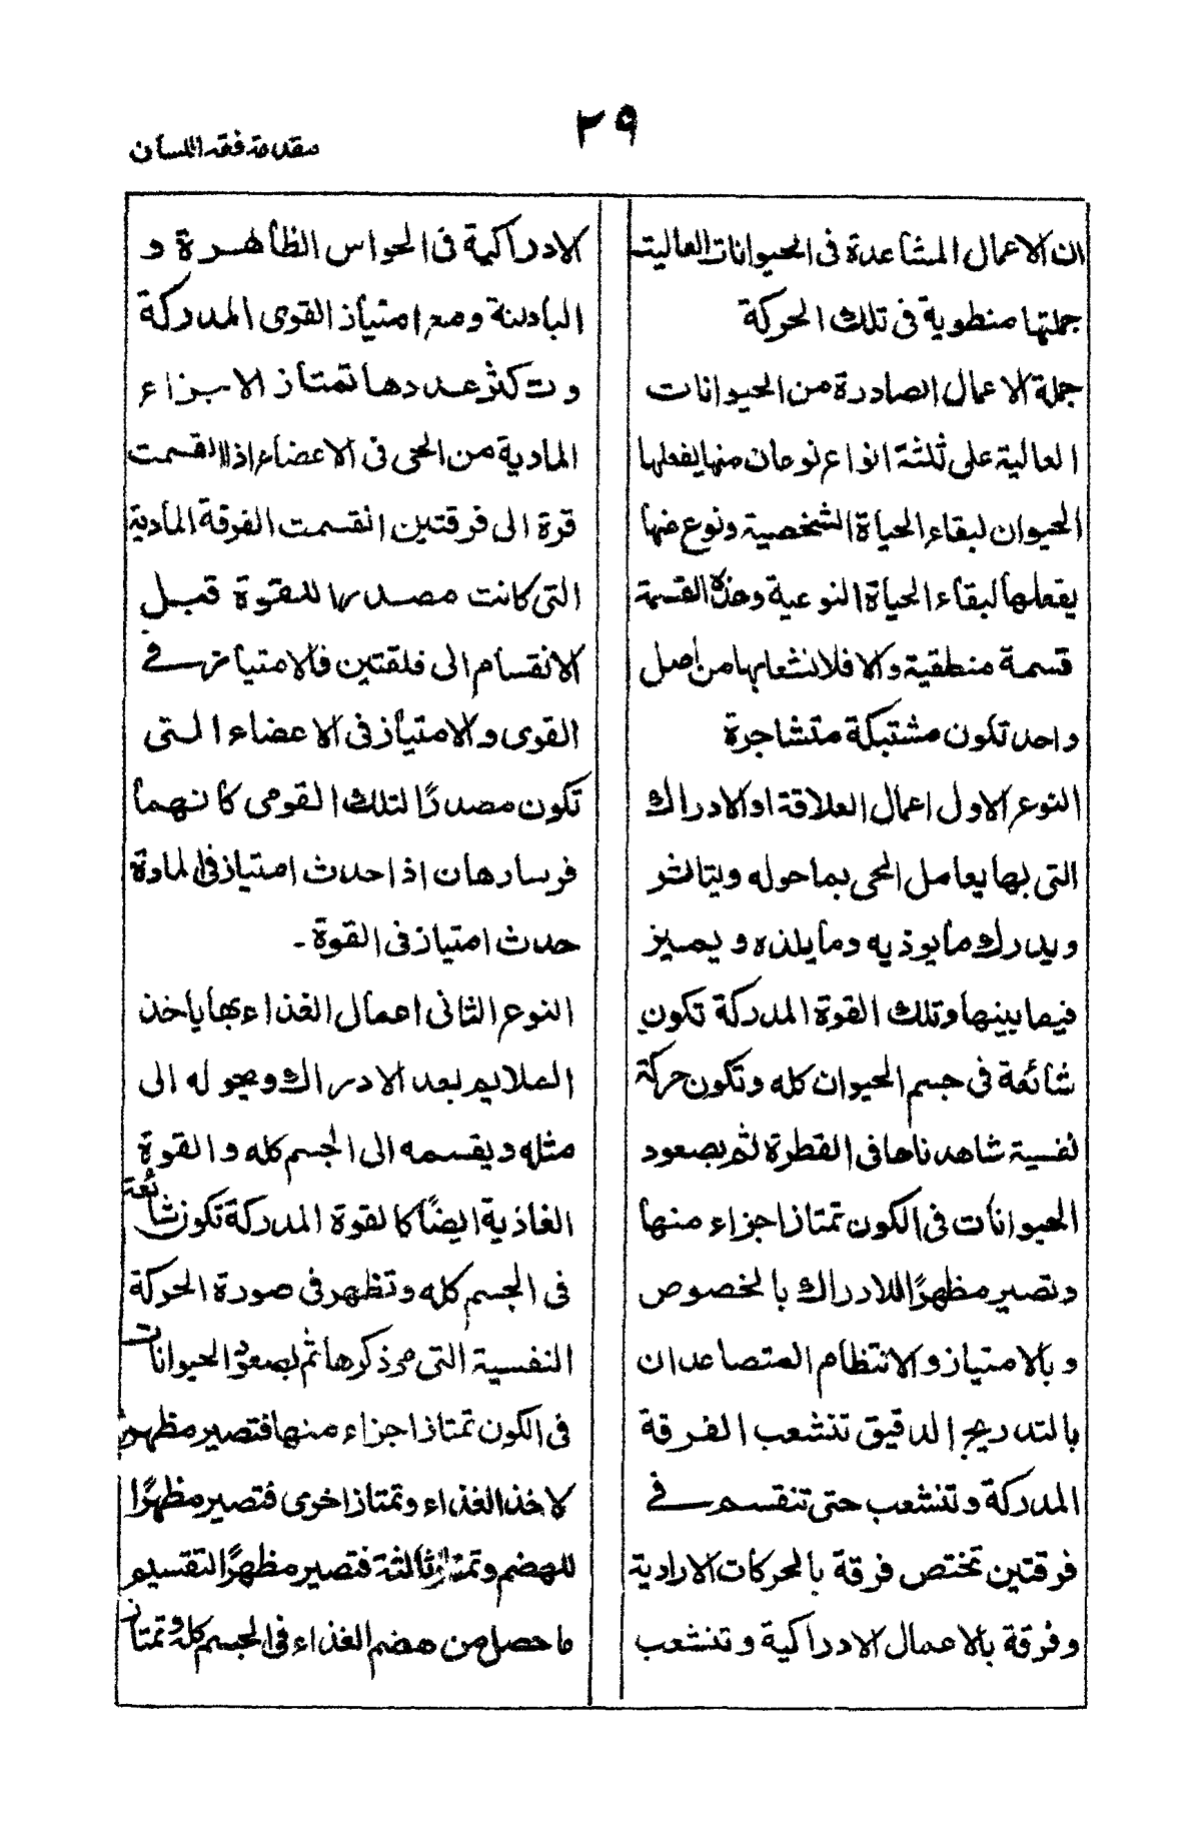 ٢٩
مقدمة فقه اللسان
ان الاعمال المشاهدة فى الحيوانات العالية
جملتها منطوية فى تلك الحركة
جملة الاعمال الصادرة من الحيوانات
العالية على ثلثة انواع نوعان منها يفعلها
الحيوان لبقاء الحياة الشخصية ونوع منها
يفعلها لبقاء الحياة النوعية وهذه القسمة
قسمة منطقية والا فلانشعابها من اصل
واحد تكون مشتبكة متشاجرة
النوع الاول اعمال العلاقة او الادراك
التى بها يعامل الحى بما حوله ويتاثر
ويدرك ما يوذيه وما يلذه ويميز
فيما بينها وتلك القوة المدركة تكون
شائعة فى جسم الحيوان كله وتكون حركة
نفسية شاهدناها فى القطرة ثم بصعود
الحيوانات فى الكون تمتاز اجزاء منها
وتصير مظهرًا للادراك بالخصوص
وبالامتياز والانتظام المتصاعدان
بالتدريج الدقيق تنشعب الفرقة
المدركة وتنشعب حتى تنقسم فى
فرقتين تختص فرقة بالحركات الارادية
وفرقة بالاعمال الادراكية وتنشعب
الادراكية فى الحواس الظاهرة و
الباطنة ومع امتياز القوى المدركة
وتكثر عددها تمتاز الاجزاء
المادية من الحى فى الاعضاء اذا انقسمت
قوة الى فرقتين انقسمت الفرقة المادية
التى كانت مصدرها للقوة قبل
الانقسام الى فلقتين فالامتياز فى
القوى والامتياز فى الاعضاء التى
تكون مصدرًا لتلك القوى كانهما
فرسا رهان اذا حدث امتياز فى المادة
حدث امتياز فى القوة ۔
النوع الثانى اعمال الغذاء بها ياخذ
الملايم بعد الادراك ويحوله الى
مثله ويقسمه الى الجسم كله والقوة
الغاذية ايضًا كالقوة المدركة تكون شائعة
فى الجسم كله وتظهر فى صورة الحركة
النفسية التى مر ذكرها ثم بصعود الحيوانات
فى الكون تمتاز اجزاء منها فتصير مظهرًا
لاخذ الغذاء وتمتاز اخرى فتصير مظهرًا
للهضم وتمتاز ثالثة فتصير مظهرًا لتقسيم
ما حصل من هضم الغذاء فى الجسم كله وتمتاز